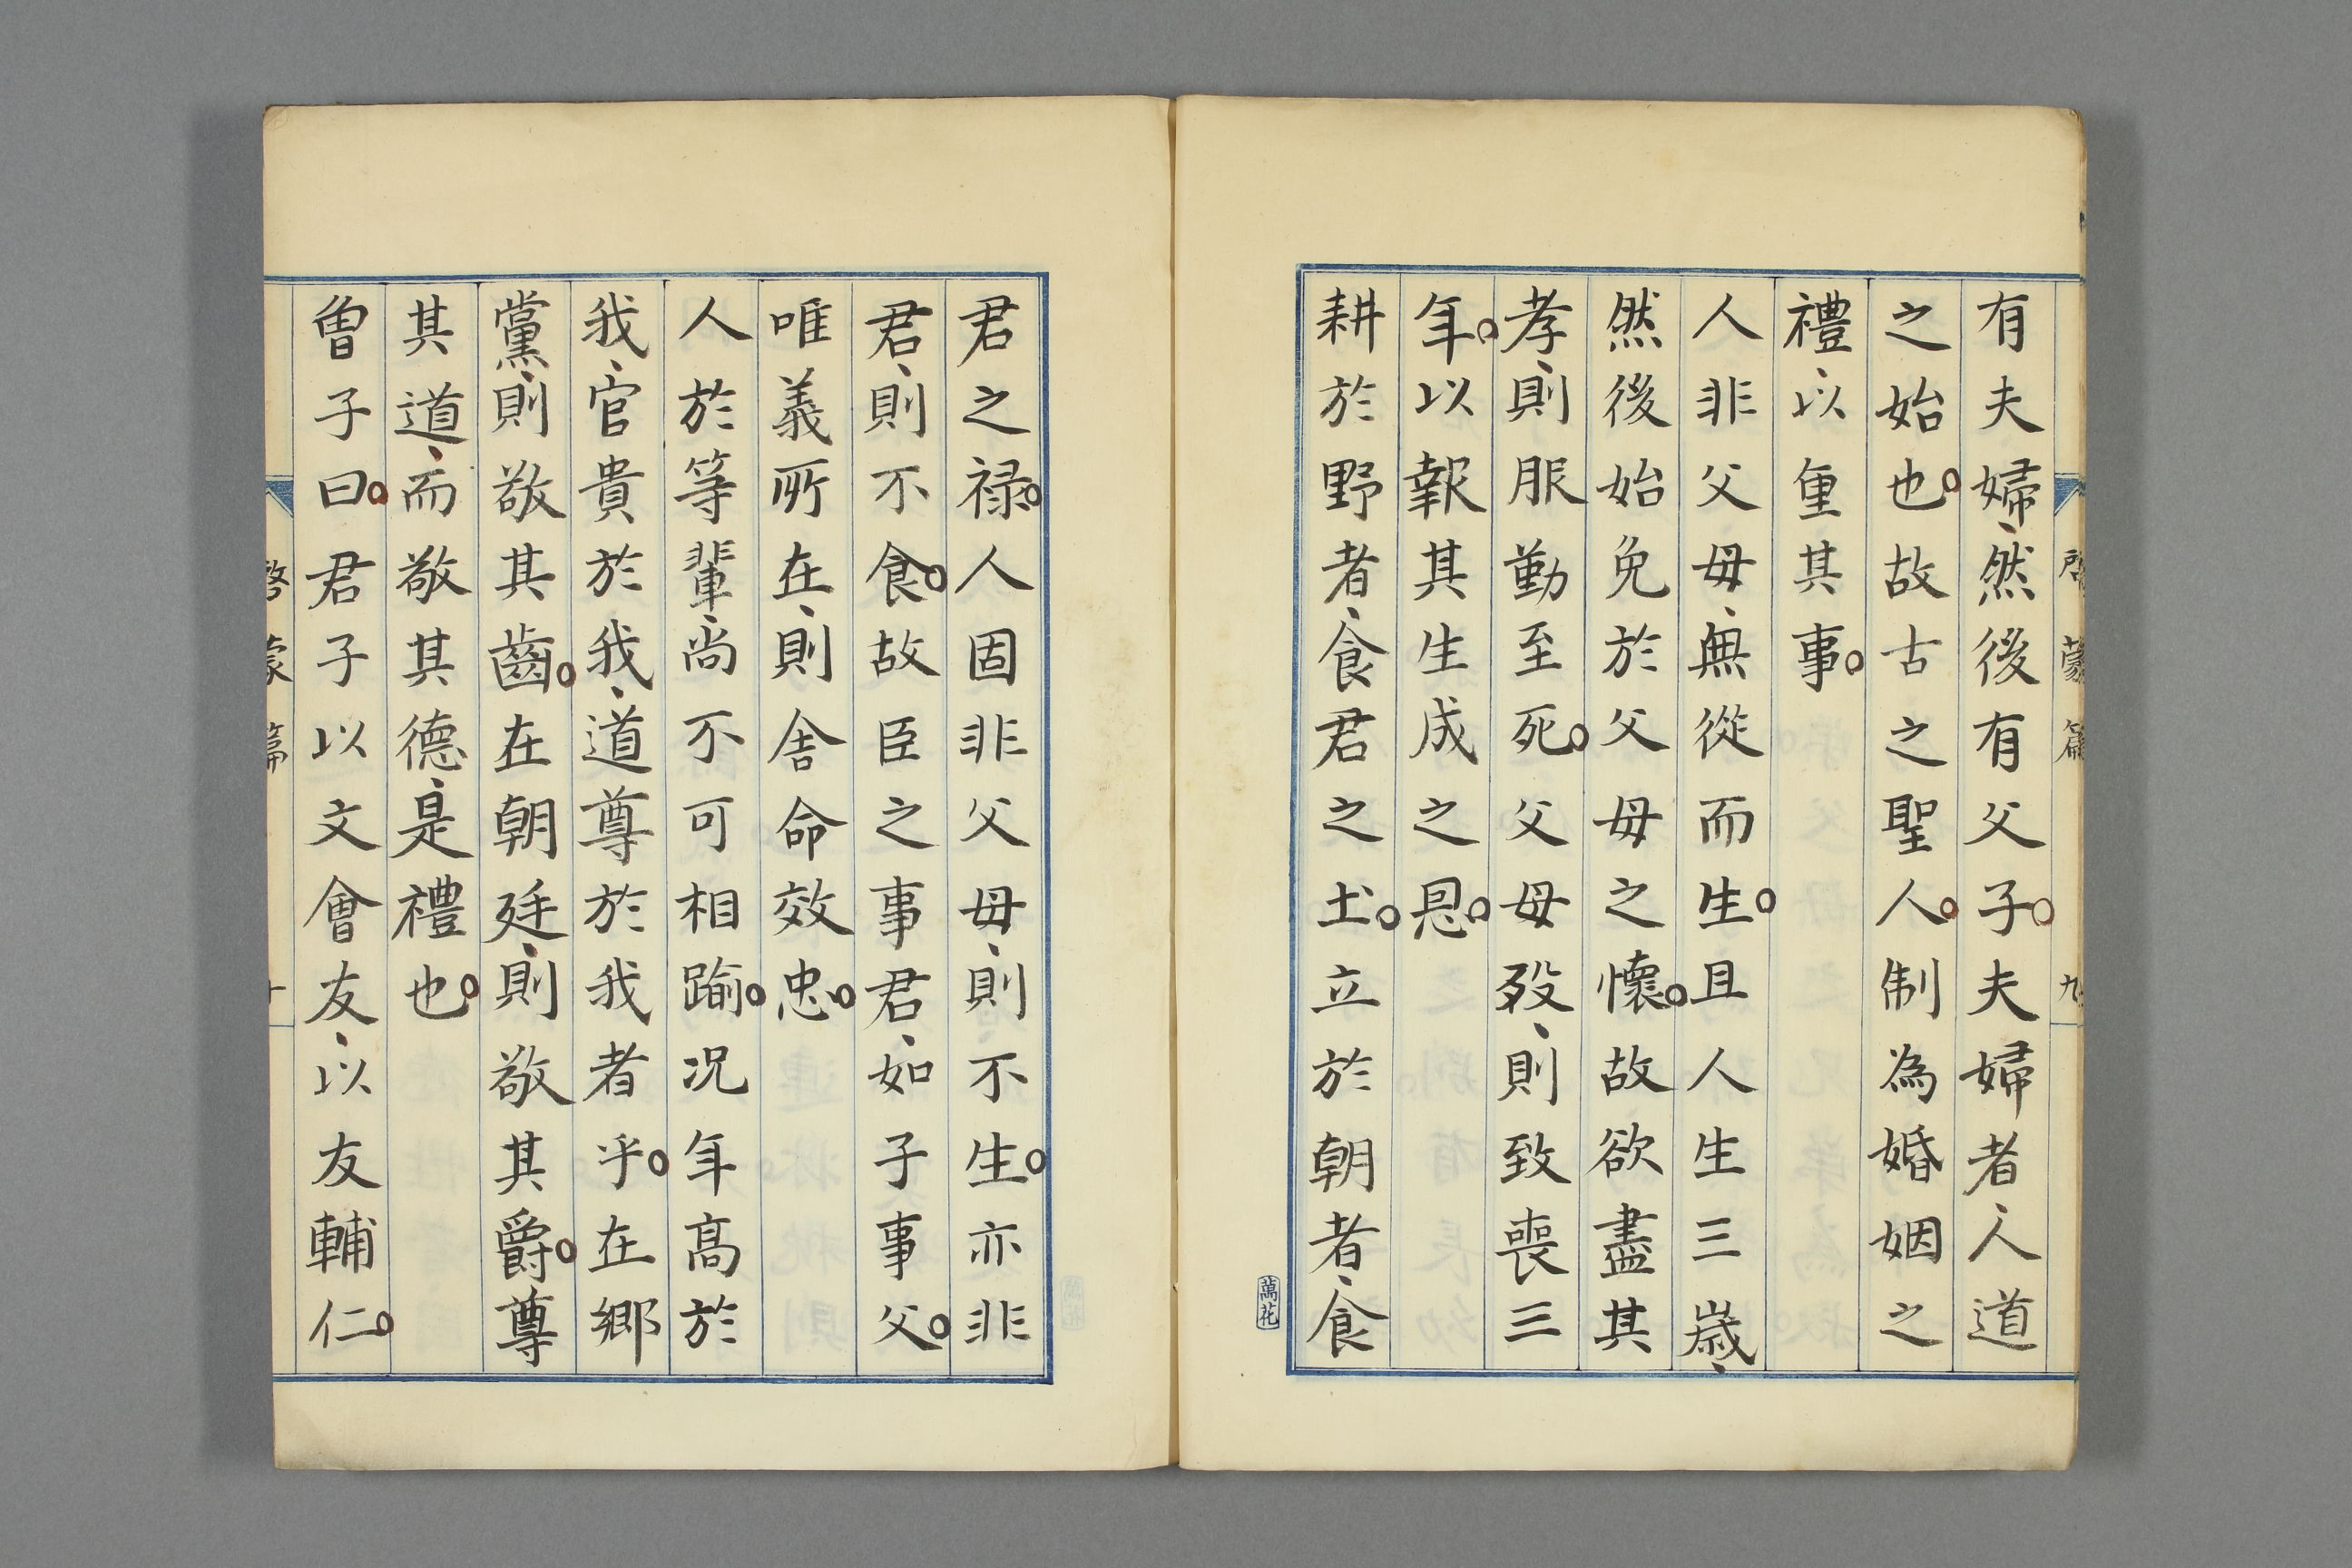 啓蒙篇 九
有夫婦、然後有父子。夫婦者、人道
之始也。故古之聖人。制為婚姻之
禮、以重其事。
人非父母、無從而生。且人生三歲、
然後始免於父母之懷。故欲盡其
孝、則服勤至死。父母歿、則致喪三
年。以報其生成之恩。
耕於野者、食君之土。立於朝者、食
萬花
君之祿。人固非父母、則不生。亦非
君、則不食。故臣之事君、如子事父。
唯義所在、則舍命效忠。
人於等輩、尚不可相踰。况年高於
我、官貴於我、道尊於我者乎。在鄉
黨、則敬其齒。在朝廷、則敬其爵。尊
其道、而敬其德、是禮也。
曾子曰。君子以文會友、以友輔仁。
啓蒙篇 十